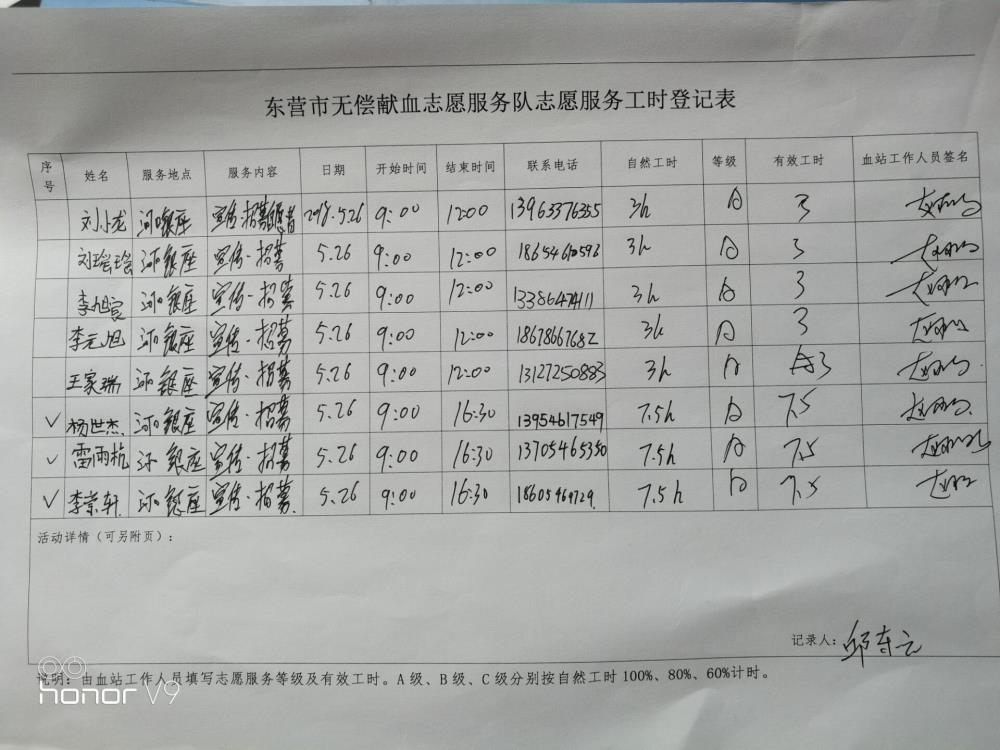 东营市无偿献血志愿服务队志愿服务工时登记表
序号 姓名 服务地点 服务内容 日期 开始时间 结束时间 联系电话 自然工时 等级 有效工时 血站工作人员签名
刘小龙 河口银座 宣传·招募志愿者 2018.5.26 9:00 12:00 13963376355 3h A 3
刘瑶瑶 河口银座 宣传·招募 5.26 9:00 12:00 18654610596 3h A 3
李旭宸 河口银座 宣传·招募 5.26 9:00 12:00 13386474111 3h A 3
李元旭 河口银座 宣传·招募 5.26 9:00 12:00 18678667682 3h A 3
王家瑞 河口银座 宣传·招募 5.26 9:00 12:00 13127250883 3h A 3
✓ 杨世杰 河口银座 宣传·招募 5.26 9:00 16:30 13954617549 7.5h A 7.5
✓ 雷雨杭 河口银座 宣传·招募 5.26 9:00 16:30 13705465350 7.5h A 7.5
✓ 李崇轩 河口银座 宣传·招募 5.26 9:00 16:30 18605469729 7.5h A 7.5
活动详情（可另附页）：
记录人：邱春云
说明：由血站工作人员填写志愿服务等级及有效工时。A级、B级、C级分别按自然工时100%、80%、60%计时。
honor V9